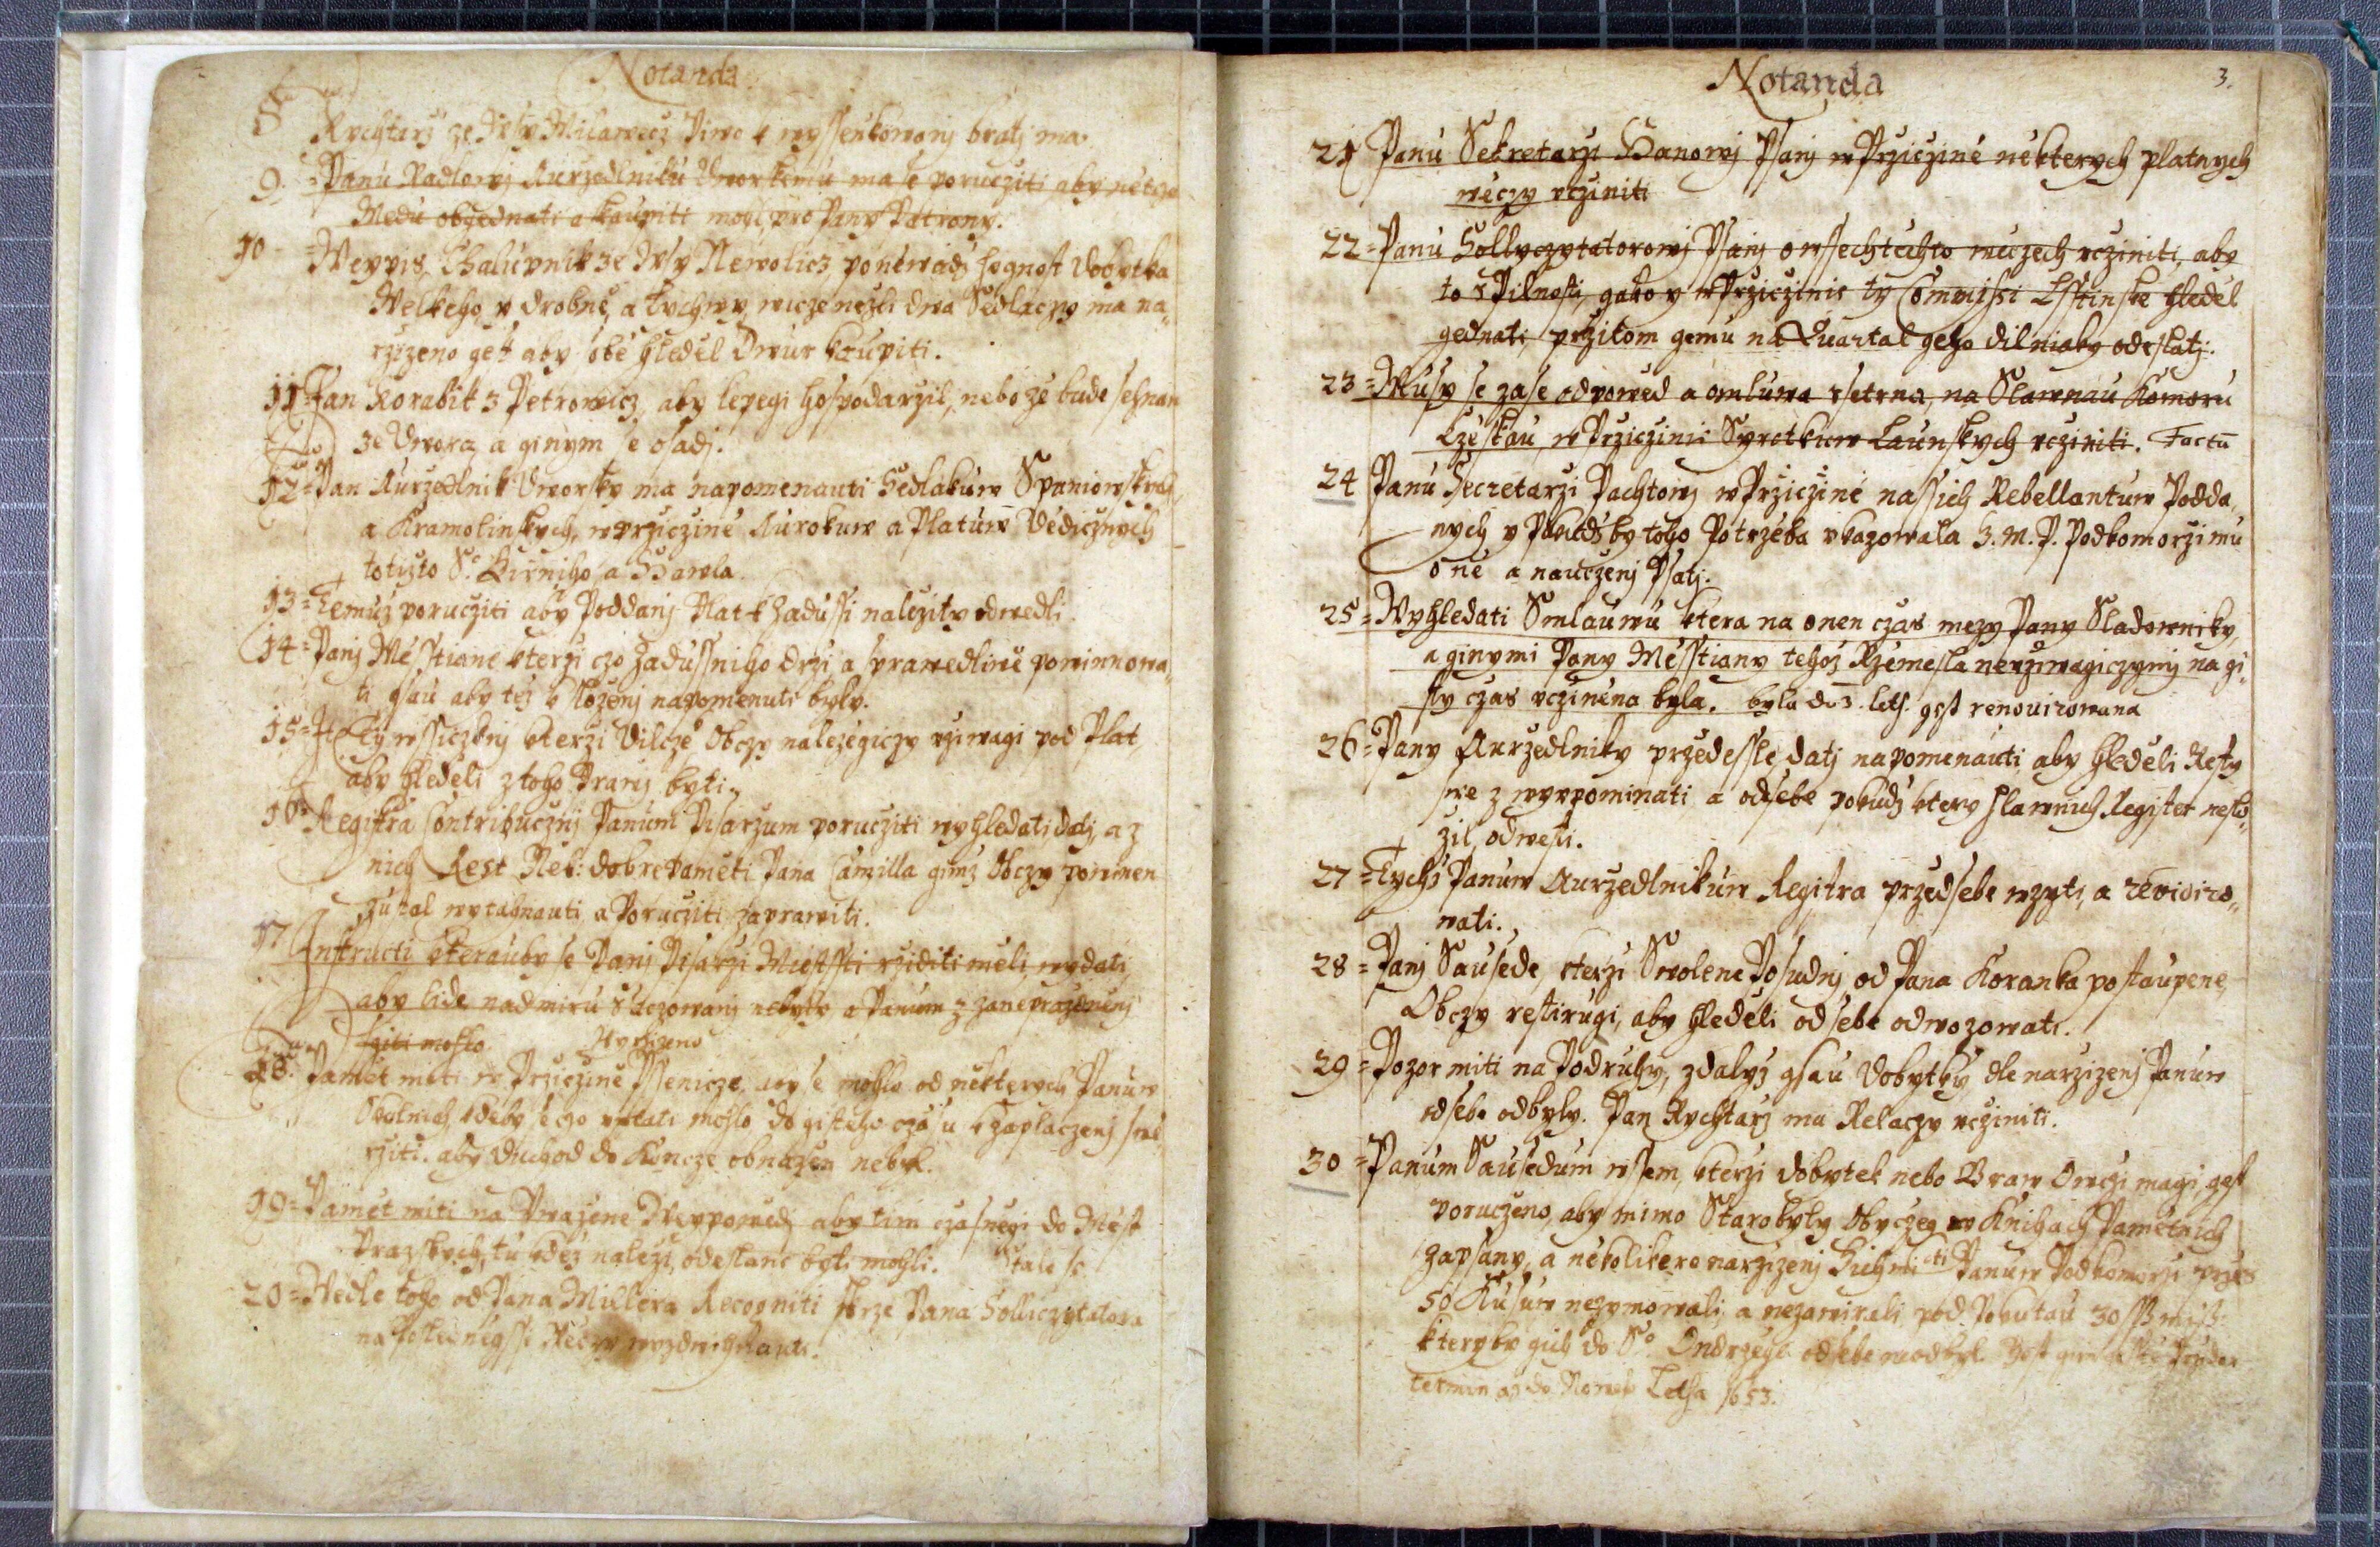 Notanda
8 Rychtarz ze Wsy Milawecz Piwo k wyssenkowonj bratj ma.
9. = Panu Radlowj Aurzedlniku Dworskemu ma se poruczitj aby neczo
Medu obgednati a kaupiti mohl pro Pany Patrony.
10 = Weypis, Chalupnik ze Wsy Newolicz ponewadz hognost dobytka
Welkeho y drobne, a Lychwy, wicze nezli dwa Sedlaczy ma na„
rzizeno gest aby sobe hledel Dwur kaupiti.
11 = Jan Korabik z Petrowicz, aby lepegi hospodarzil, nebo ze bude sehnan
ze Dwora a ginym se osadj.
12 = Pan Aurzedlnik Dworsky ma napomenauti Sedlakuw Spaniowskych
a Kramolinskych, w prziczine Aurokuw a Platuw Dedicznych
totizto S. Girziho, a Hawla.
13 = Temuz porucziti aby Poddanj Plat k Zadussi nalezity odwedli.
14 = Panj Messtiane kterzi czo Zadussniho drzi, a sprawedliwe powinnowa„
ti gsau aby tez k slozenj napomenuti byly.
15 = Ty wssiczknj kterzi Dilcze Obczy nalezegiczy uziwagi pod Plat
aby hledeli z toho Prawj byti.
16 = Registra Contribucznj Panum Pisarzum porucziti wyhledati, datj, a z
nich Rest Neb: dobre Pameti Pana Camilla gimz Obczy powinen
zustal wytahnauti, a Porucziti zaprawiti.
17 Instructi kterauby se Panj Pisarzi Miestssti rziditi meli wydatj
aby lide nadmiru sacgowanj nebyly a Panum z zaneprazdnenj
sgiti mohlo. Wyrzizeno
18. Pamet miti w Prziczine Pssenicze aby se mohlo od nekterych Panuw
Okolnich kdeby se czo ptati mohlo do gisteho czasu k zaplaczenj swe„
rziti. aby Duchod do Koncze obnazen nebyl.
19 = Pamet miti na Prazene Weypowedi aby tim czasnegi do Mest
Prazskych, tu kdez nalezi, odeslane byti mohli. Stalo se
20 = Wedle toho od Pana Millera Recogniti skrze Pana Solliczytatora
na posledniegssi Weczy wyzdwihnauti.
Notanda 3.
21 Panu Sekretarzi Hanowj Psanj w Prziczine nekterych platnych
weczy ucziniti
22 = Panu Sollyczytatorowj Psanj o wssech techto weczech ucziniti, aby
to s Pilnosti, gako y w Prziczinie ty Commissi Lsstinske hledel
gednati, przitom gemu na Quartal geho dil niaky odeslatj.
23 = Musy se zase odpowed a omluwa ssetrna, na Slawnau Komoru
Czeskau, w Prziczinie Syrotkuw Launskych ucziniti. Factu
24 Panu Secretarzi Pachtowj w Prziczine nassich Rebellantuw Podda„
nych y Pokudz by toho Potrzeba ukazowala J. M. P. Podkomorzimu
o ne a nauczenj Psatj.
25 = Wyhledati Smlauwu ktera na onen czas mezy Pany Sladowniky,
a ginymi Pany Messtiany tehoz Rzemesla neuziwagiczymj na gi„
sty czas uczinena byla. byla do 3. leth. gest renouirowana
26 = Pany Aurzedlniky przedessle, datj napomenauti aby hledeli Resty
swe z wyupominati a od sebe pokudz ktery hlawnich Register neslo„
zil, odwesti.
27 = Tychz Panuw Aurzedlnikuw Registra przed sebe wzyti, a revidiro„
wati.
28 = Panj Sausede, kterzi Swolene Posudnj od Pana Koranka postaupene,
Obczy restirugi, aby hledeli od sebe odwozowati.
29 = Pozor miti na Podruhy, zdalyz gsau Dobytky dle narzizenj Panuw
od sebe odbyly. Pan Rychtarz ma Relaczy ucziniti.
30 = Panum Sausedum wssem, kterzi dobytek nebo Braw Owczi magi, gest
poruczeno, aby mimo Starobyly Obyczeg w Knihach Pametnich
zapsany, a nekolikero narzizenj Gich Mi^cti Panuw Podkomorzi przes
50 Kusuw nezymowali, a nezawirali, pod Pokutau 30 ss miss:
kteryby gich do S^o Ondrzege od sebe neodbyl. Gest gim
termin az do Noweho Letha 1653.